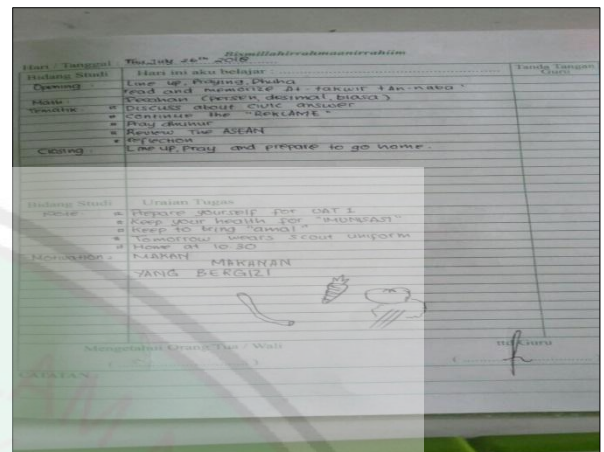 Bismillahirrahmaanirrahiim
Hari / Tanggal : Thu, July 26th 2018
Bidang Studi Hari ini aku belajar : Tanda Tangan Guru
Opening : Line up, Praying, Dhuha
read and memorize At-takwir & An-naba'
Math : Pecahan (persen, desimal, biasa)
Tematik : Discuss about civic answer
Continue the "REKLAME"
Pray dhuhur
Review The ASEAN
reflection
Closing : Line up, Pray and prepare to go home.
Bidang Studi Uraian Tugas
Note Prepare yourself for UAT 1
Keep your health for "MUNIFAST"
Keep to bring "amal"
Tomorrow wears scout uniform
Home at 10.30
Motivation : MAKAN MAKANAN
YANG BERGIZI
Mengetahui Orang Tua / Wali ttd Guru
CATATAN :